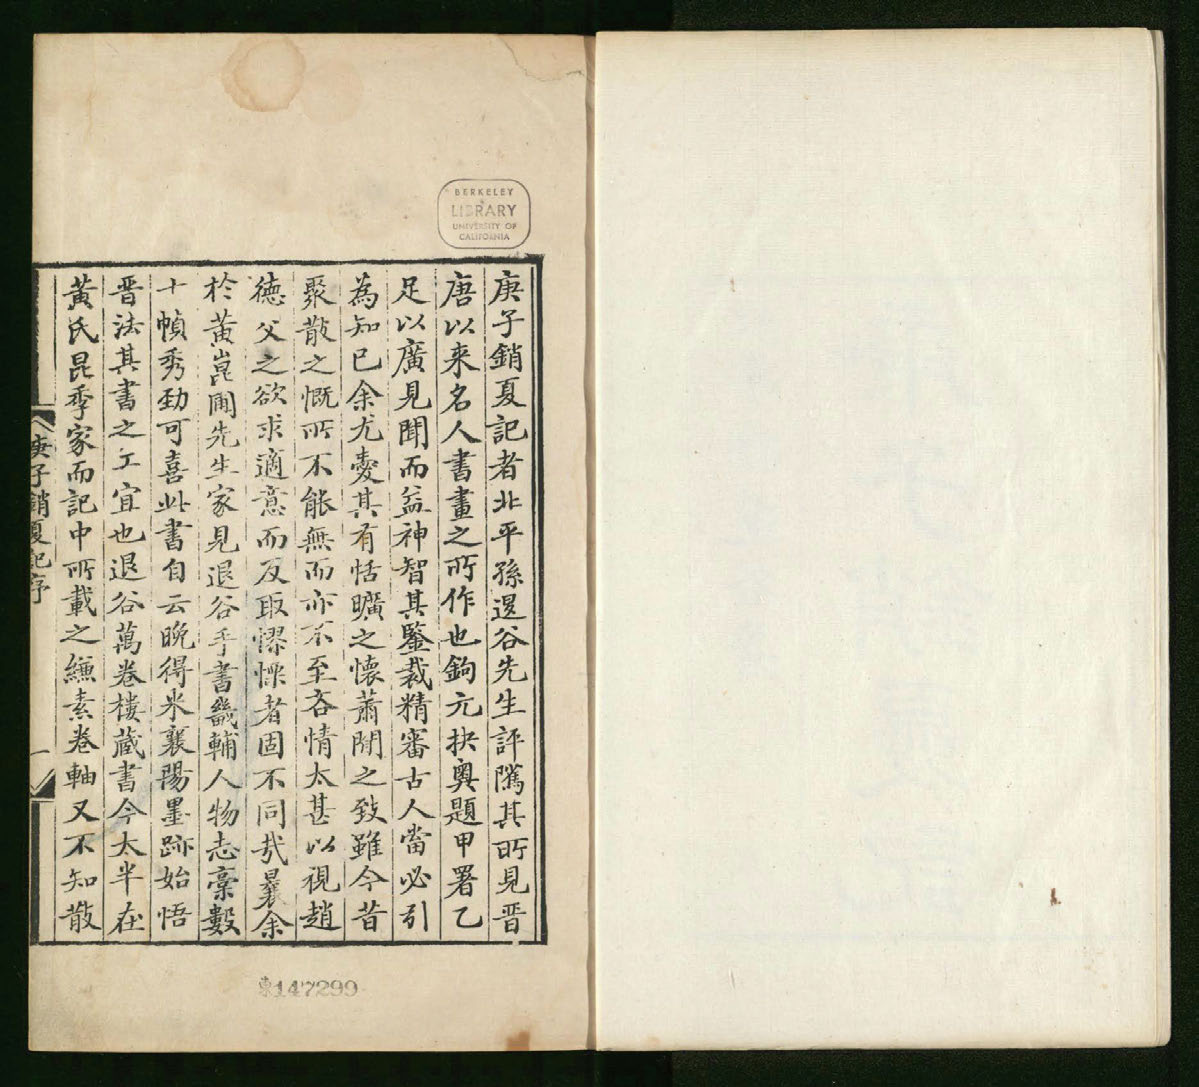 庚子銷夏記者北平孫退谷先生評隲其所見晉
唐以来名人書畫之所作也鉤元抉奧題甲署乙
足以廣見聞而益神智其鑒裁精審古人當必引
為知已余尤愛其有恬曠之懷蕭閒之致雖今昔
聚散之慨所不能無而亦不至吝情太甚以視趙
徳父之欲求適意而反取憀慄者固不同哉曩余
於黃崑圃先生家見退谷手書畿輔人物志稾數
十幀秀勁可喜此書自云晚得米襄陽墨跡始悟
晋法其書之工宜也退谷萬卷樓蔵書今太半在
黃氏昆季家而記中所載之縑素卷軸又不知散
庚子銷夏記序
一
BERKELEY
LIBRARY
UNIVERSITY OF
CALIFORNIA
東147299